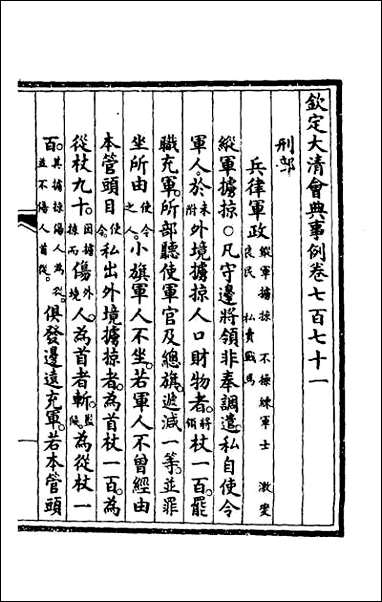 欽定大清會典事例卷七百七十一
刑部
兵律軍政 縱軍擄掠 不操練軍士 激變良民 私賣戰馬
縱軍擄掠○凡守邊將領非奉調遣私自使令
軍人於未附外境擄掠人口財物者將領杖一百罷
職充軍所部聽使軍官及總旗遞減一等並罪
坐所由使令之人小旗軍人不坐若軍人不曾經由
本管頭目使令私出外境擄掠者為首杖一百為
從杖九十因擄掠而傷外境人為首者斬監候為從杖一
百其擄掠傷人為從並不傷人首從俱發邊遠充軍若本管頭